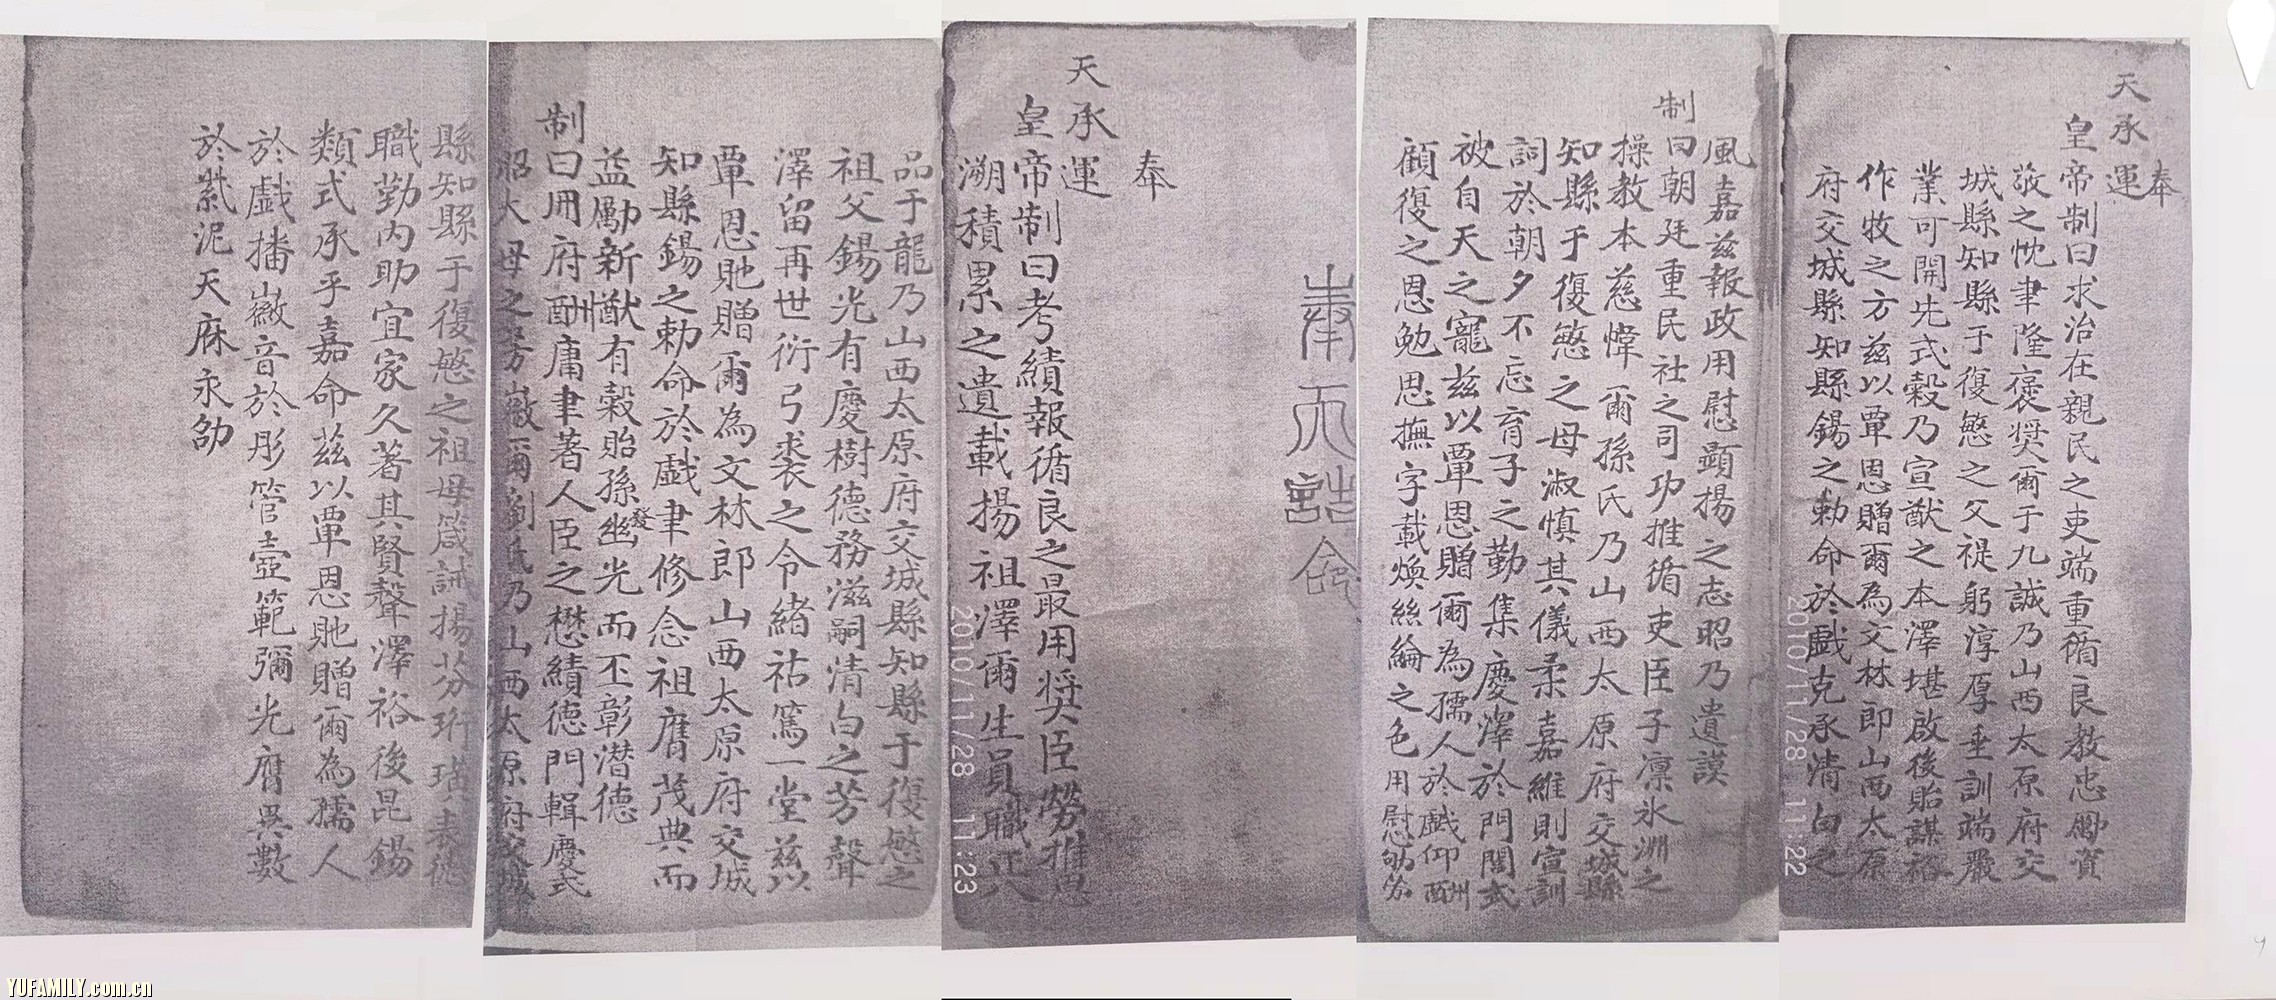 奉
天承運
皇帝制曰求治在親民之吏端重循良教忠勵資
敬之忱聿隆褒奨爾于九誠乃山西太原府交
城縣知縣于復慜之父褆躬淳厚垂訓端嚴
業可開先式穀乃宣猷之本澤堪啟後貽謀裕
作牧之方兹以覃恩贈爾為文林郎山西太原
府交城縣知縣錫之勅命於戲克承清白之
風嘉兹報政用慰顕揚之志昭乃遺謨
制曰朝廷重民社之司功推循吏臣子凛氷渊之
操教本慈幃爾孫氏乃山西太原府交城縣
知縣于復慜之母淑慎其儀柔嘉維則宣訓
詞於朝夕不忘育子之勤集慶澤於門閭式
被自天之寵兹以覃恩贈爾為孺人於戲仰酬
顧復之恩勉思撫字載煥絲綸之色用慰劬勞
奉天誥命
奉
天承運
皇帝制曰考績報循良之最用奨臣勞推恩
溯積累之遺載揚祖澤爾生員職正八
品于龍乃山西太原府交城縣知縣于復慜之
祖父錫光有慶樹德務滋嗣清白之芳聲
澤留再世衍弓裘之令緒祜篤一堂兹以
覃恩貤贈爾為文林郎山西太原府交城
知縣錫之勅命於戲聿修念祖膺茂典而
益勵新猷有穀貽孫發幽光而丕彰潜德
制曰冊府酬庸聿著人臣之懋績德門輯慶式
昭大母之芳徽爾劉氏乃山西太原府交城
縣知縣于復慜之祖母箴誡揚芬珩璜表德
職勤内助宜家久著其賢聲澤裕後昆錫
類式承乎嘉命兹以覃恩貤贈爾為孺人
於戲播徽音於彤管壼範彌光膺異數
於紫泥天庥永劭
2010/11/28 11:23
2010/11/28 11:22
YUFAMILY.com.cn